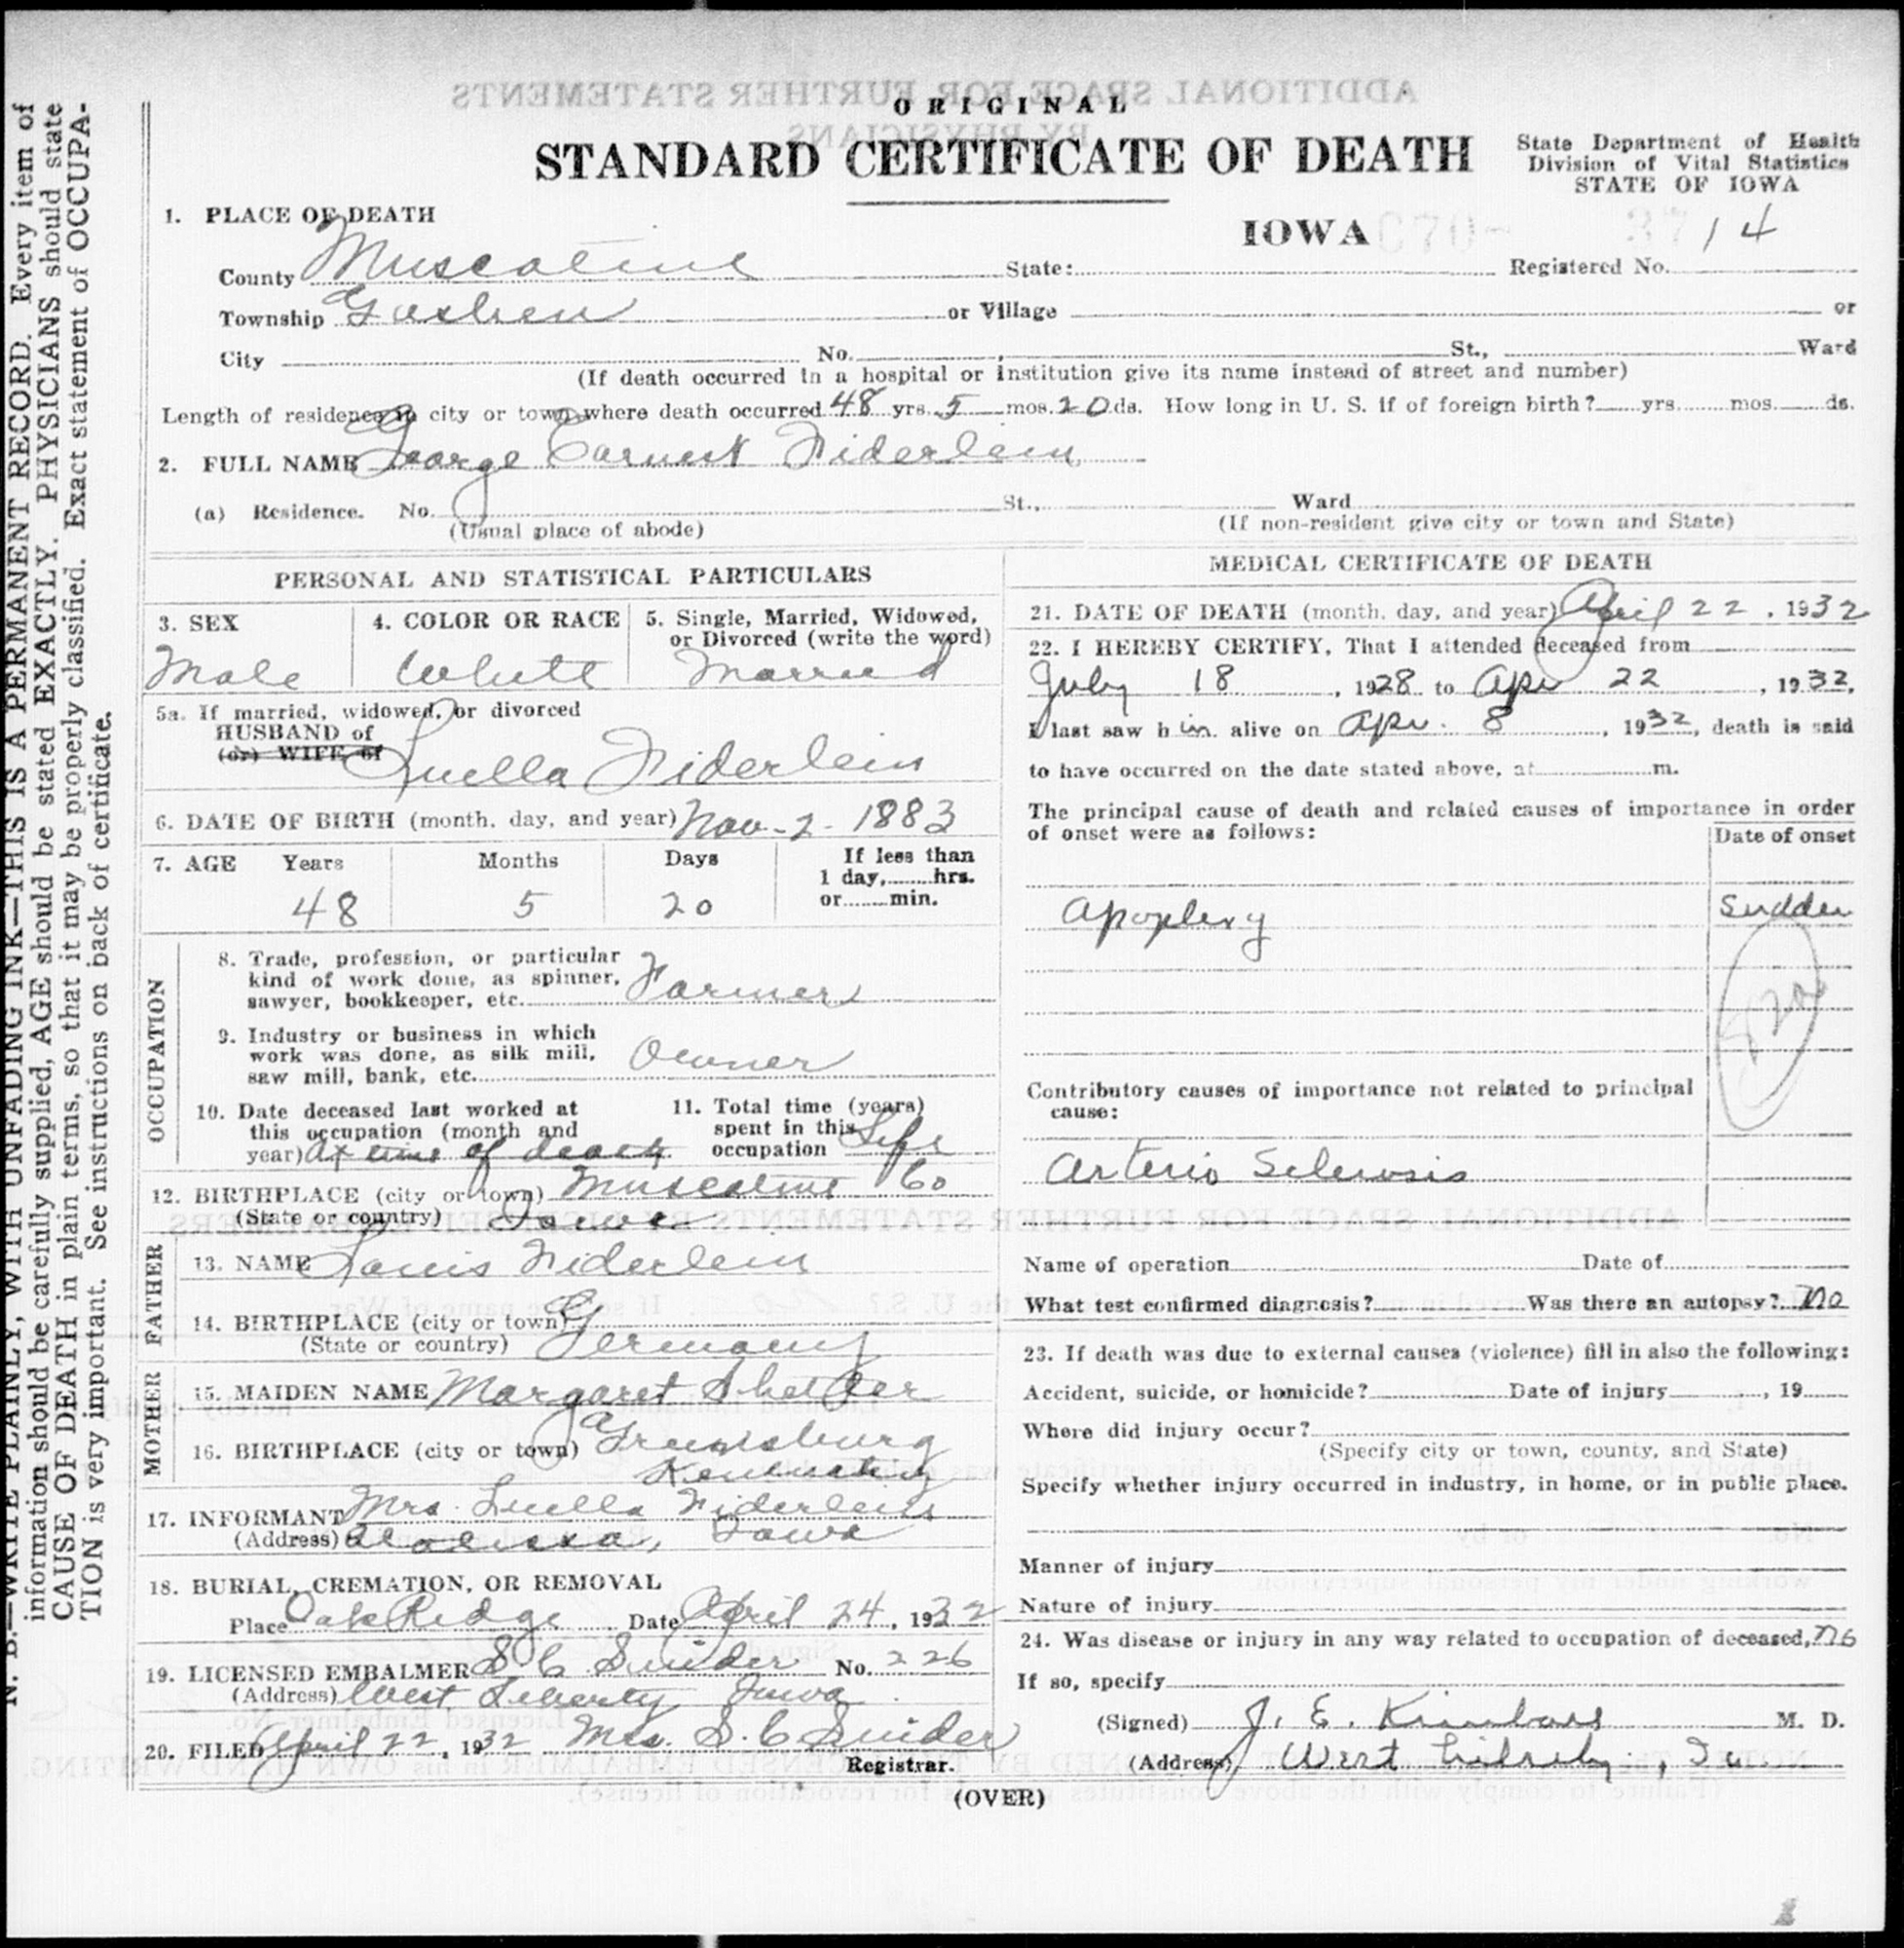 ORIGINAL
STANDARD CERTIFICATE OF DEATH
State Department of Health
Division of Vital Statistics
STATE OF IOWA
IOWA
1. PLACE OF DEATH
County Muscatine State: Registered No. 14
Township Goshen or Village or
City No. , St., Ward
(If death occurred in a hospital or institution give its name instead of street and number)
Length of residence in city or town where death occurred 48 yrs. 5 mos. 20 ds. How long in U. S. if of foreign birth? yrs. mos. ds.
2. FULL NAME George Earnest Fiderlein
(a) Residence. No. St., Ward
(Usual place of abode) (If non-resident give city or town and State)
PERSONAL AND STATISTICAL PARTICULARS
3. SEX
Male
4. COLOR OR RACE
White
5. Single, Married, Widowed,
or Divorced (write the word)
Married
5a. If married, widowed, or divorced
HUSBAND of
(or) WIFE of
Luella Fiderlein
6. DATE OF BIRTH (month, day, and year) Nov - 2 - 1883
7. AGE Years Months Days If less than
1 day, hrs.
or min.
48 5 20
OCCUPATION
8. Trade, profession, or particular
kind of work done, as spinner,
sawyer, bookkeeper, etc. Farmer
9. Industry or business in which
work was done, as silk mill,
saw mill, bank, etc. Owner
10. Date deceased last worked at
this occupation (month and
year) At time of death
11. Total time (years)
spent in this
occupation Life
12. BIRTHPLACE (city or town) Muscatine Co
(State or country) Iowa
FATHER
13. NAME Louis Fiderlein
14. BIRTHPLACE (city or town)
(State or country) Germany
MOTHER
15. MAIDEN NAME Margaret
16. BIRTHPLACE (city or town)
Kentucky
17. INFORMANT Mrs. Luella Fiderlein
(Address) Atalissa, Iowa
18. BURIAL, CREMATION, OR REMOVAL
Place Oak Ridge Date April 24, 1932
19. LICENSED EMBALMER S. C. Snider No. 226
(Address) West Liberty, Iowa
20. FILED April 22, 1932 Mrs. S. C Snider
Registrar.
MEDICAL CERTIFICATE OF DEATH
21. DATE OF DEATH (month, day, and year) April 22, 1932
22. I HEREBY CERTIFY, That I attended deceased from
July 18, 1928 to Apr 22, 1932,
I last saw h im alive on Apr. 8, 1932, death is said
to have occurred on the date stated above, at m.
The principal cause of death and related causes of importance in order
of onset were as follows:
Date of onset
Apoplexy Sudden
Contributory causes of importance not related to principal
cause:
Arterio Sclerosis
Name of operation Date of
What test confirmed diagnosis? Was there an autopsy? No
23. If death was due to external causes (violence) fill in also the following:
Accident, suicide, or homicide? Date of injury , 19
Where did injury occur?
(Specify city or town, county, and State)
Specify whether injury occurred in industry, in home, or in public place.
Manner of injury
Nature of injury
24. Was disease or injury in any way related to occupation of deceased, no
If so, specify
(Signed) J. E. Kimball M. D.
(Address) West Liberty, Ia.
(OVER)
N. B.—WRITE PLAINLY, WITH UNFADING INK—THIS IS A PERMANENT RECORD. Every item of
information should be carefully supplied, AGE should be stated EXACTLY. PHYSICIANS should state
CAUSE OF DEATH in plain terms, so that it may be properly classified. Exact statement of OCCUPA-
TION is very important. See instructions on back of certificate.